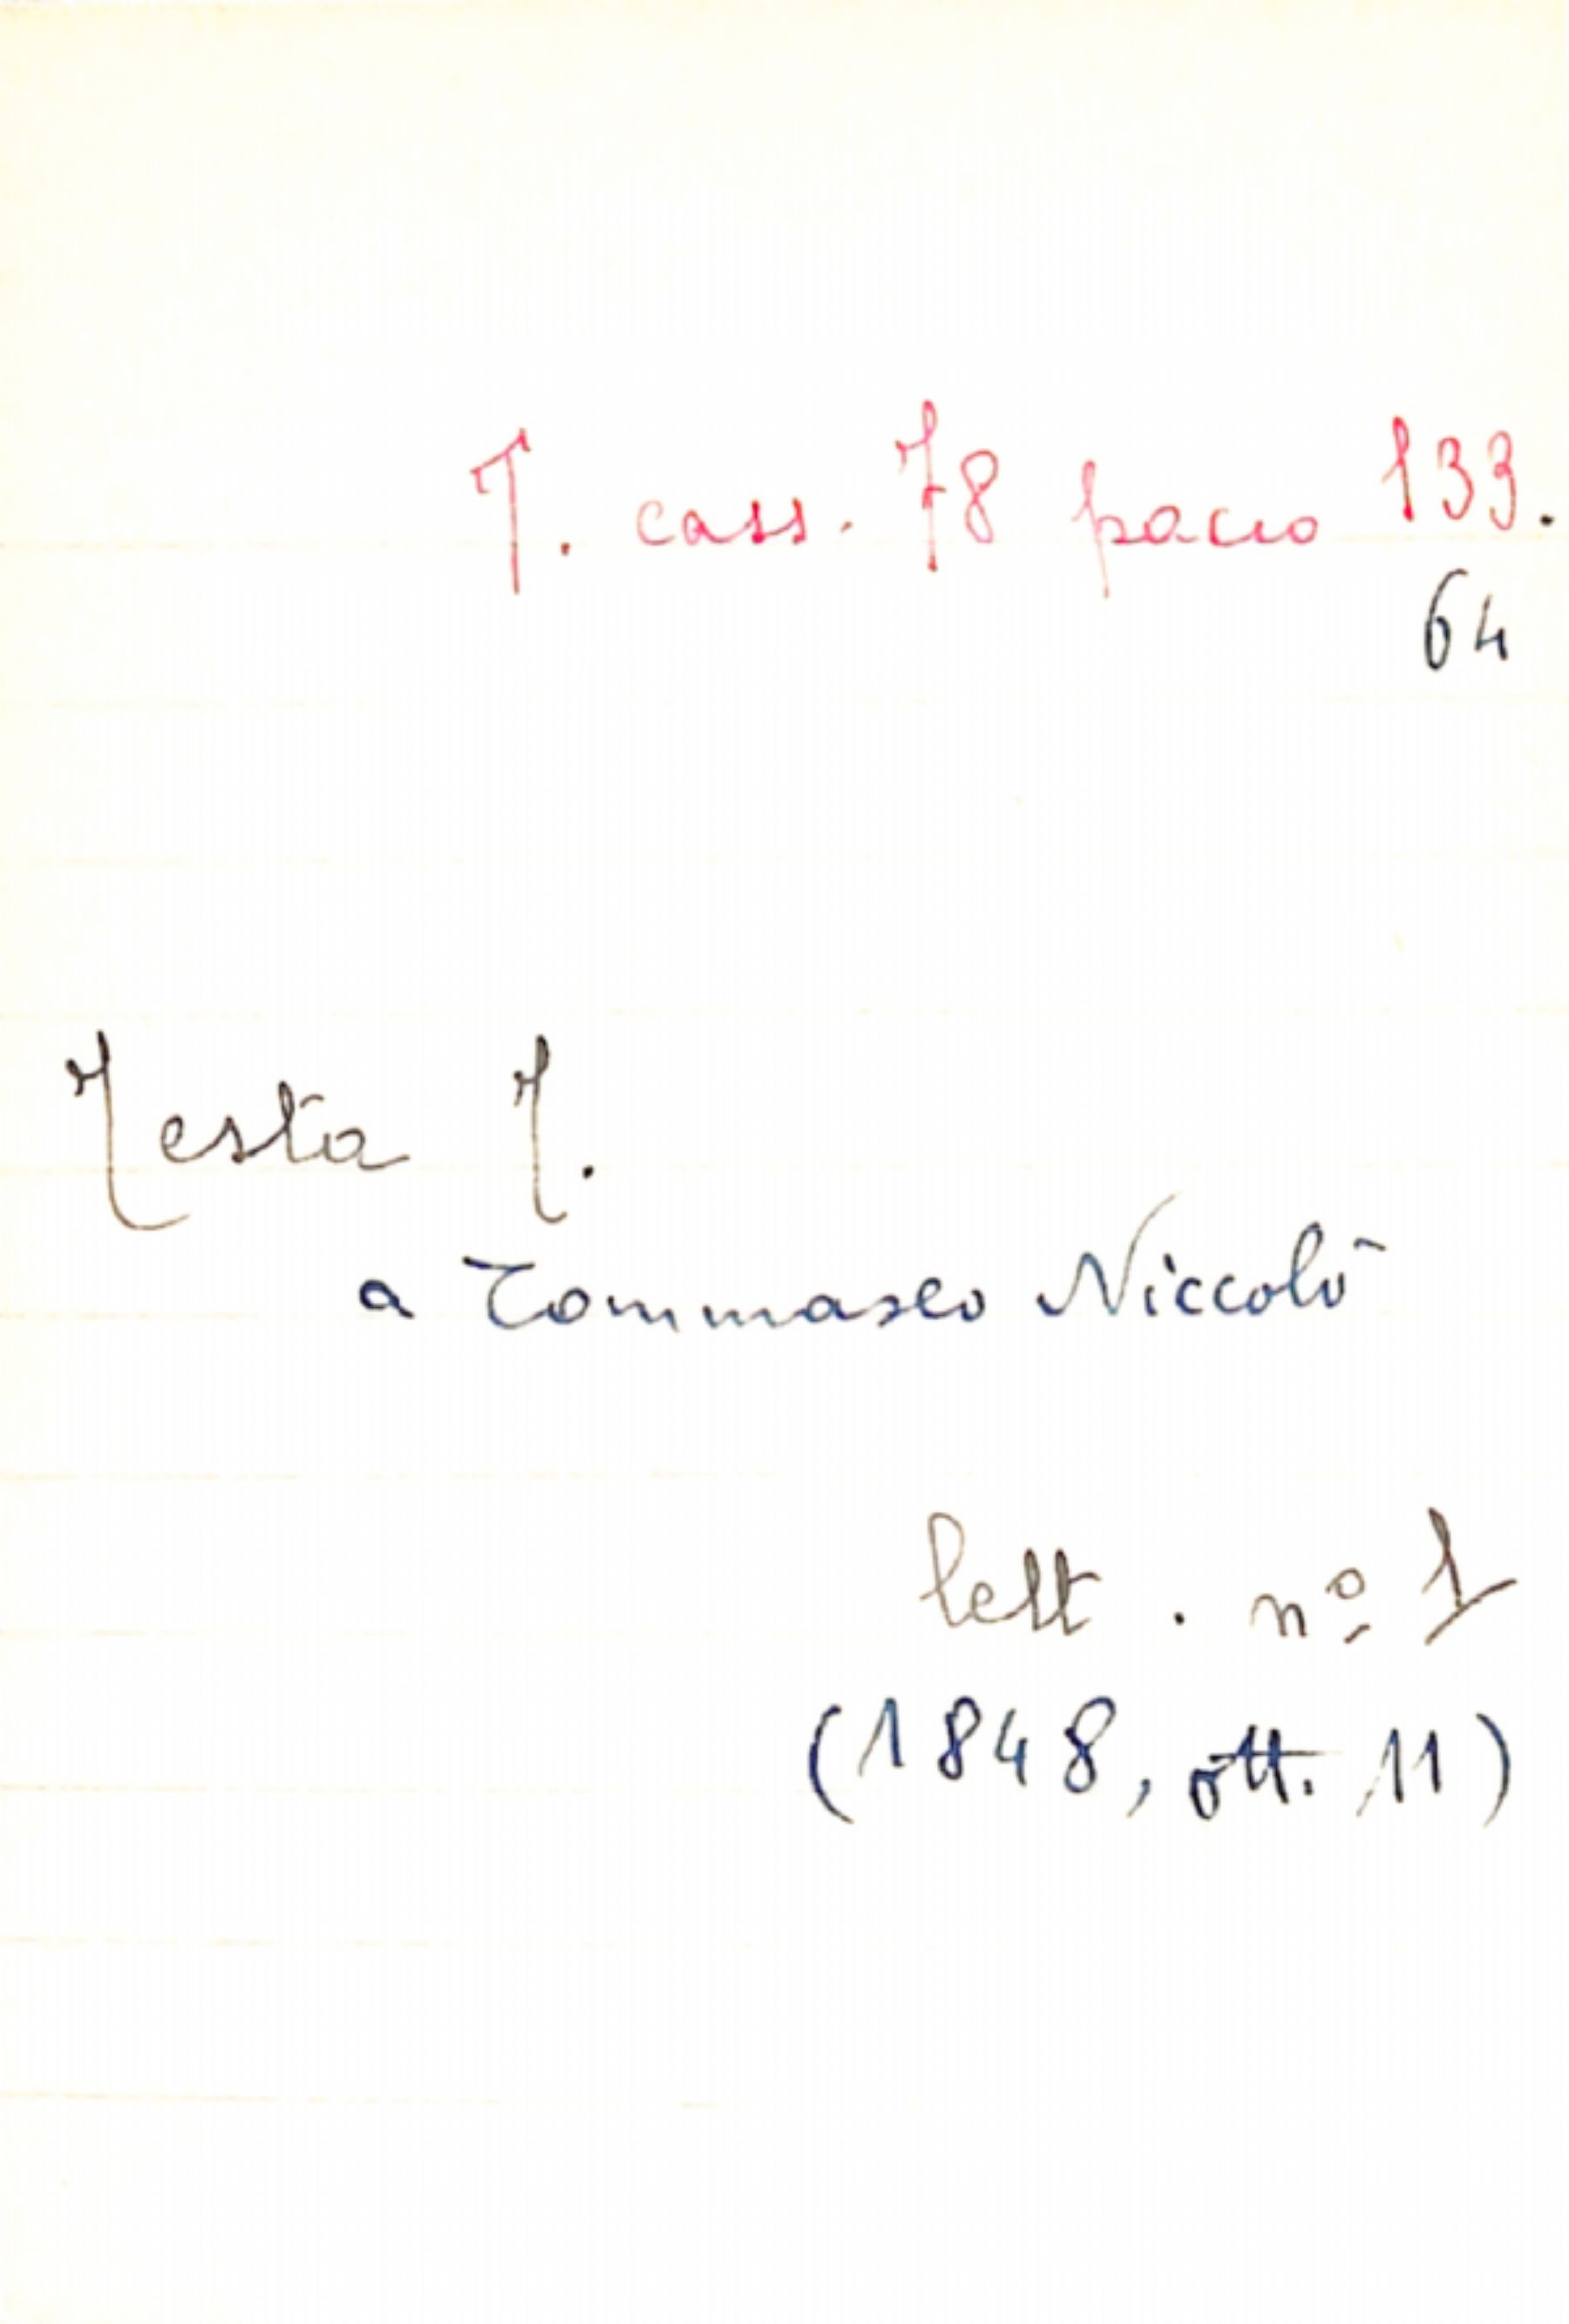 T. cass. 78 pacco 133.
64
Testa T.
a Tommaseo Niccolò
lett. nº 1
(1848, ott. 11)